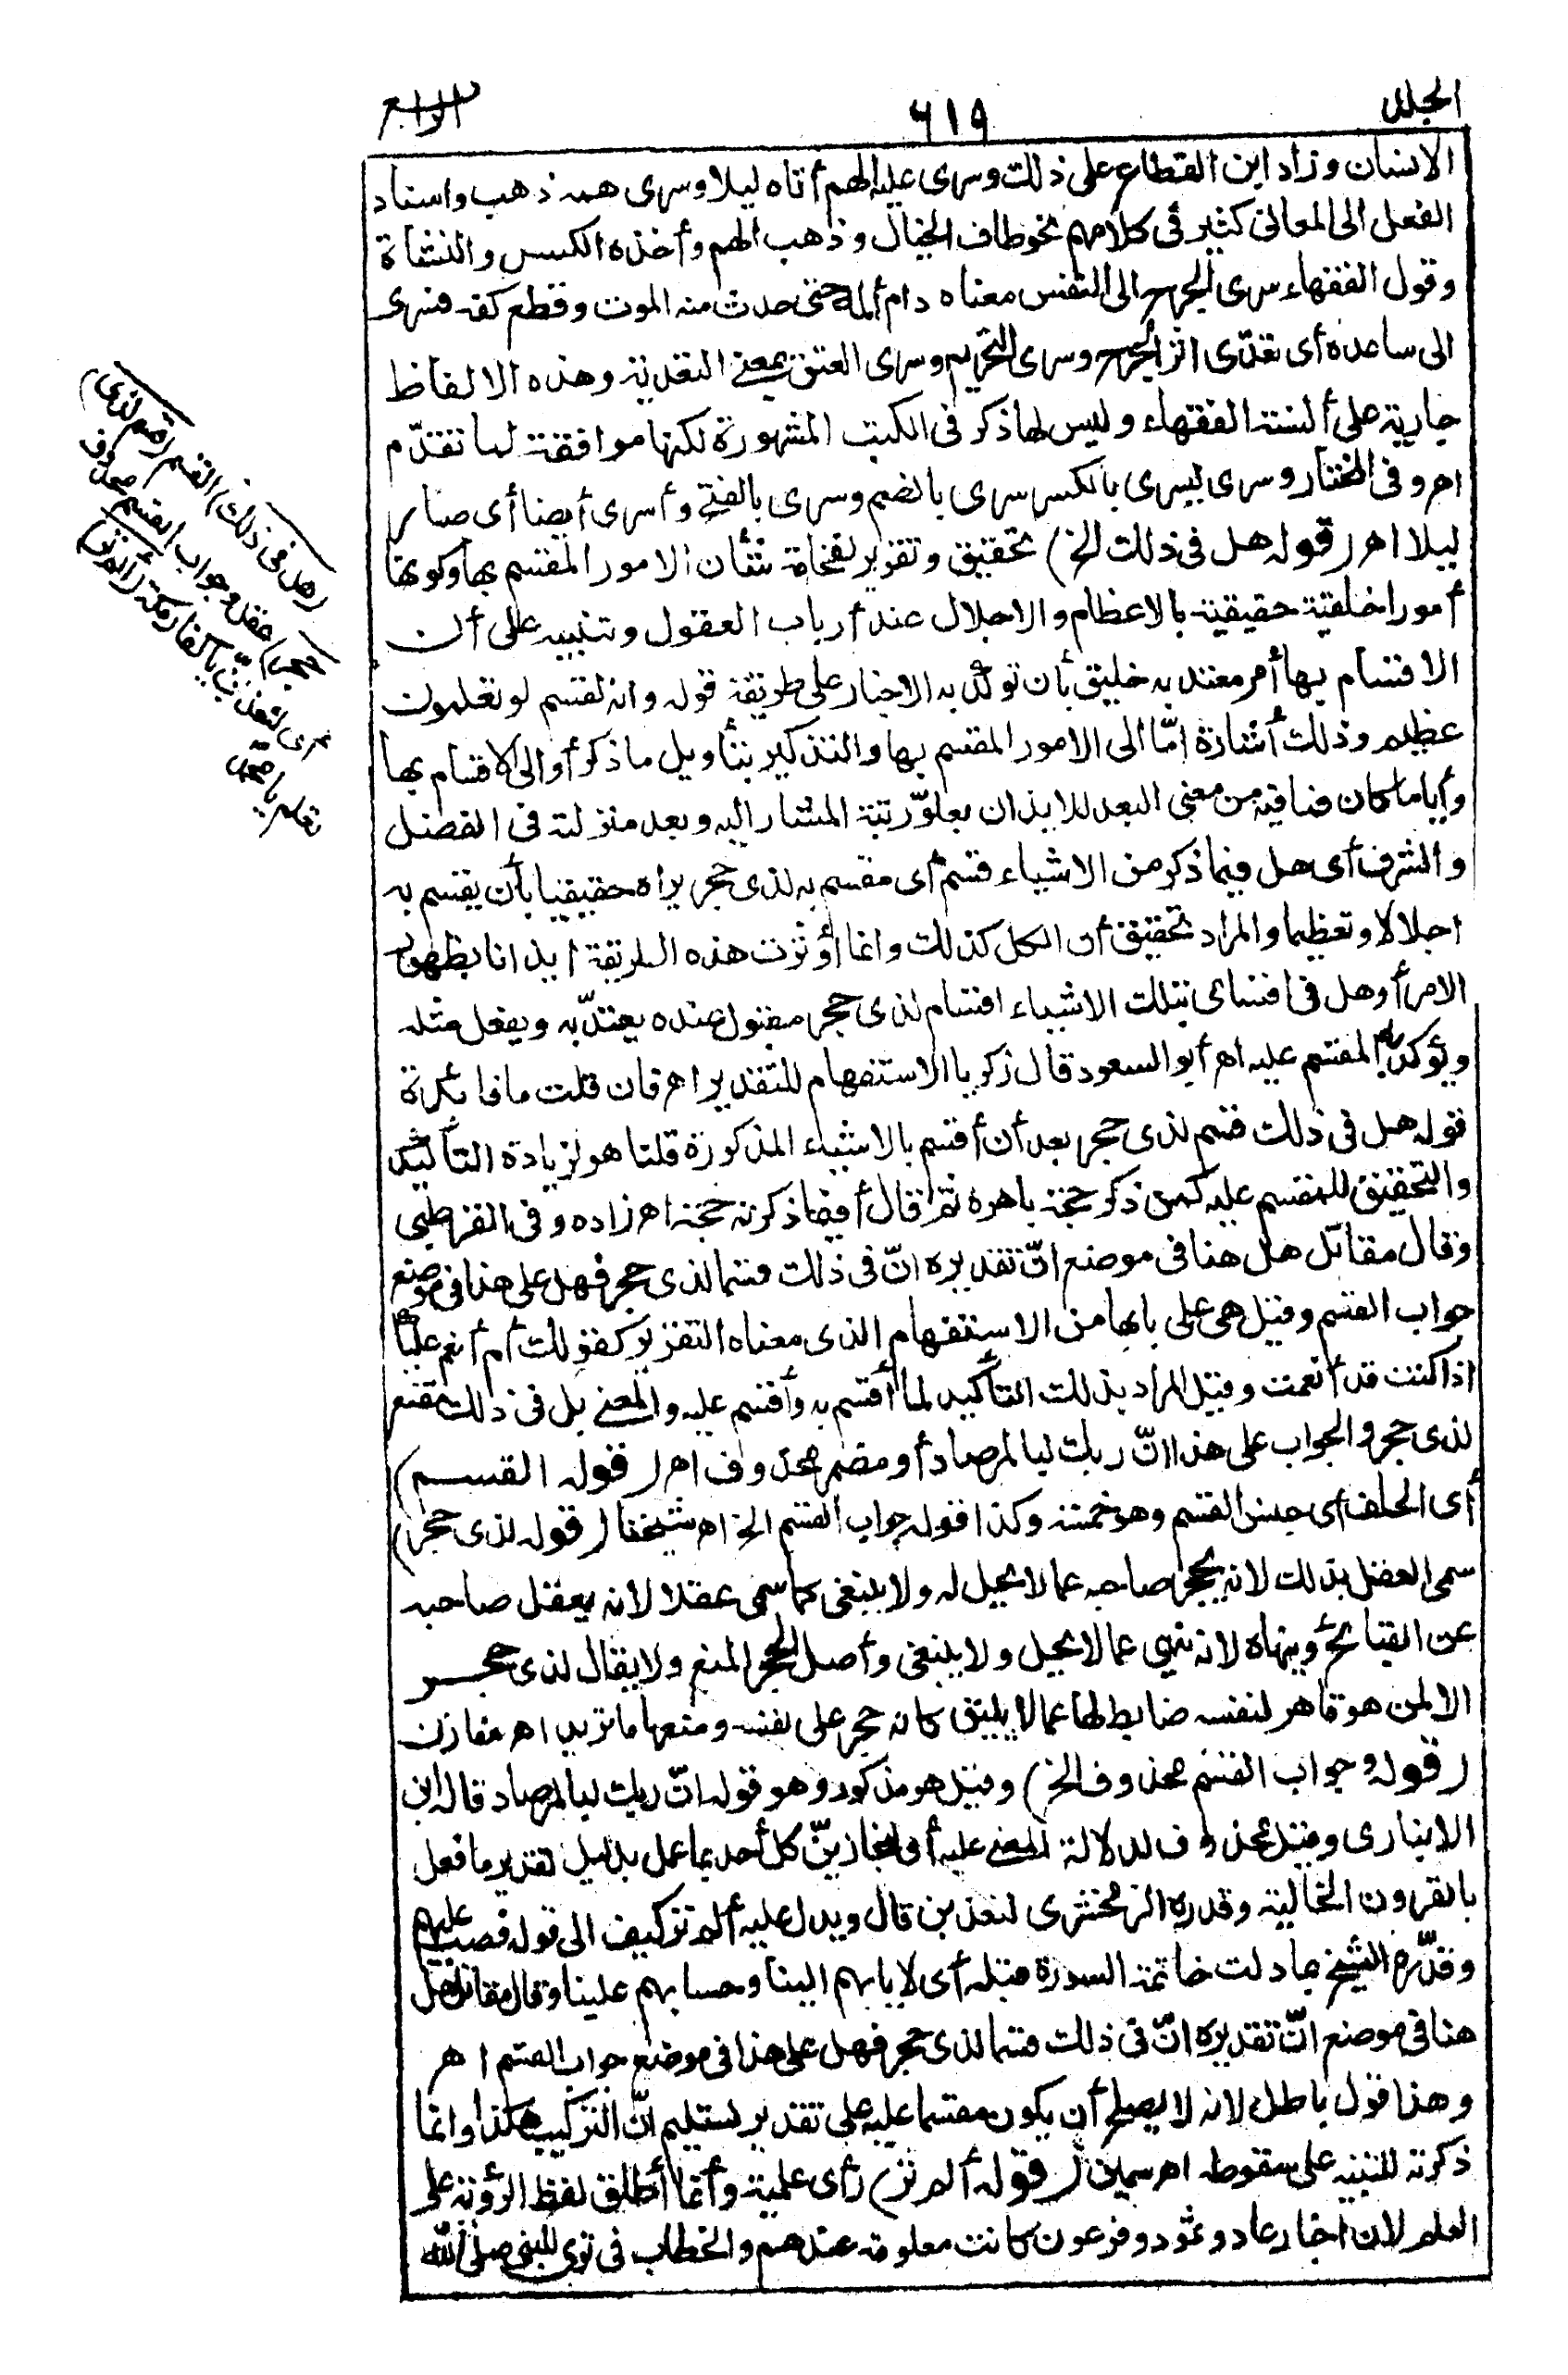 الجلد
٦١٩
الرابع
الانسان وزاد ابن القطاع على ذلك وسرى عليه الهم أتاه ليلا وسرى همه ذهب واسناد
الفعل الى المعانى كثير فى كلامهم نحو طاف الخيال وذهب الهم وأخذه الكسل والنشاط
وقول الفقهاء سرى الجرح الى النفس معناه دام ألمه حتى حدث منه الموت وقطع كفه فسرى
الى ساعده أى تعدّى اثر الجرح وسرى التحريم وسرى العتق بمعنى التعدية وهذه الالفاظ
جارية على ألسنة الفقهاء وليس لها ذكر فى الكتب المشهورة لكنها موافقة لما تقدّم
اهـ وفى المختار وسرى يسرى بالكسر سرى بالضم وسرى بالفتح وأسرى أيضا أى صار
ليلا اهـ (قوله هل فى ذلك الخ) تحقيق وتقرير لفخامة شأن الامور المقسم بها وكونها
أمورا خليقة حقيقة بالاعظام والاجلال عند أرباب العقول وتنبيه على أن
الاقسام بها أمر معتد به خليق بأن تؤكد به الاخبار على طريقة قوله وانه لقسم لو تعلمون
عظيم وذلك أشارة امّا الى الامور المقسم بها والتذكير بتأويل ما ذكر أو الى الاقسام بها
وأياما كان فما فيه من معنى البعد للايذان بعلوّ رتبة المشار اليه وبعد منزلته فى الفضل
والشرف أى هل فيما ذكر من الاشياء قسم أى مقسم به لذى حجر يراه حقيقيا بأن يقسم به
اجلالا وتعظيما والمراد تحقيق أن الكل كذلك وانما أوثرت هذه الطريقة ايذانا بظهور
الامر أو هل فى اقسامى بتلك الاشياء اقسام لذى حجر مقبول عنده يعتدّ به ويفعل مثله
ويؤكد به المقسم عليه اهـ أبو السعود قال زكريا الاستفهام للتقدير اهـ فان قلت ما فائدة
قوله هل فى ذلك قسم لذى حجر بعد أن أقسم بالاشياء المذكورة قلنا هو لزيادة التأكيد
والتحقيق للمقسم عليه كمن ذكر حجة باهرة ثم قال أفيما ذكرته حجة اهـ زاده وفى القرطبى
وقال مقاتل هل هنا فى موضع انّ تقديره انّ فى ذلك قسما لذى حجر فهل على هذا فى موضع
جواب القسم وقيل هى على بابها من الاستفهام الذى معناه التقرير كقولك ألم أنعم عليك
اذا كنت قد أنعمت وقيل المراد بذلك التأكيد لما أقسم به وأقسم عليه والمعنى بل فى ذلك مقنع
لذى حجر والجواب على هذا انّ ربك لبالمرصاد أو مضمر محذوف اهـ (قوله القسم)
أى الحلف أى جنس القسم وهو خمسة وكذا قوله جواب القسم الخ اهـ شيخنا (قوله لذى حجر)
سمى العقل بذلك لانه يحجر صاحبه عما لا يحل له ولا ينبغى كما سمى عقلا لانه يعقل صاحبه
عن القبائح وينهاه لانه نهى عما لا يحل ولا ينبغى وأصل الحجر المنع ولا يقال لذى حجر
الا لمن هو قاهر لنفسه ضابط لها عما لا يليق كانه حجر على نفسه ومنعها ما تريد اهـ خازن
(قوله وجواب القسم محذوف الخ) وقيل هو مذكور وهو قوله انّ ربك لبالمرصاد قاله ابن
الانبارى وقيل محذوف لدلالة المعنى عليه أى لنجازينّ كل أحد بما عمل بدليل تقدير ما فعل
بالقرون الخالية وقدره الزمخشرى لنعذبن قال ويدل عليه ألم تر كيف الى قوله فصب عليهم
وقدّره الشيخ بما دلت خاتمة السورة قبله أى لايابهم الينا وحسابهم علينا وقال مقاتل هل
هنا فى موضع انّ تقديره انّ فى ذلك قسما لذى حجر فهل على هذا فى موضع جواب القسم اهـ
وهذا قول باطل لانه لا يصلح أن يكون مقسما عليه على تقدير تسليم انّ التركيب هكذا وانما
ذكرته للتنبيه على سقوطه اهـ سمين (قوله ألم تر) رأى علمية وأنما أطلق لفظ الرؤية على
العلم لان اخبار عاد وثمود وفرعون كانت معلومة عندهم والخطاب فى ترى للنبى صلى الله
(هل فى ذلك) القسم (قسم لذى
حجر) عقل وجواب القسم محذوف
أى لتعذبنّ يا كفار مكة (ألم تر)
تعلم يا محمد